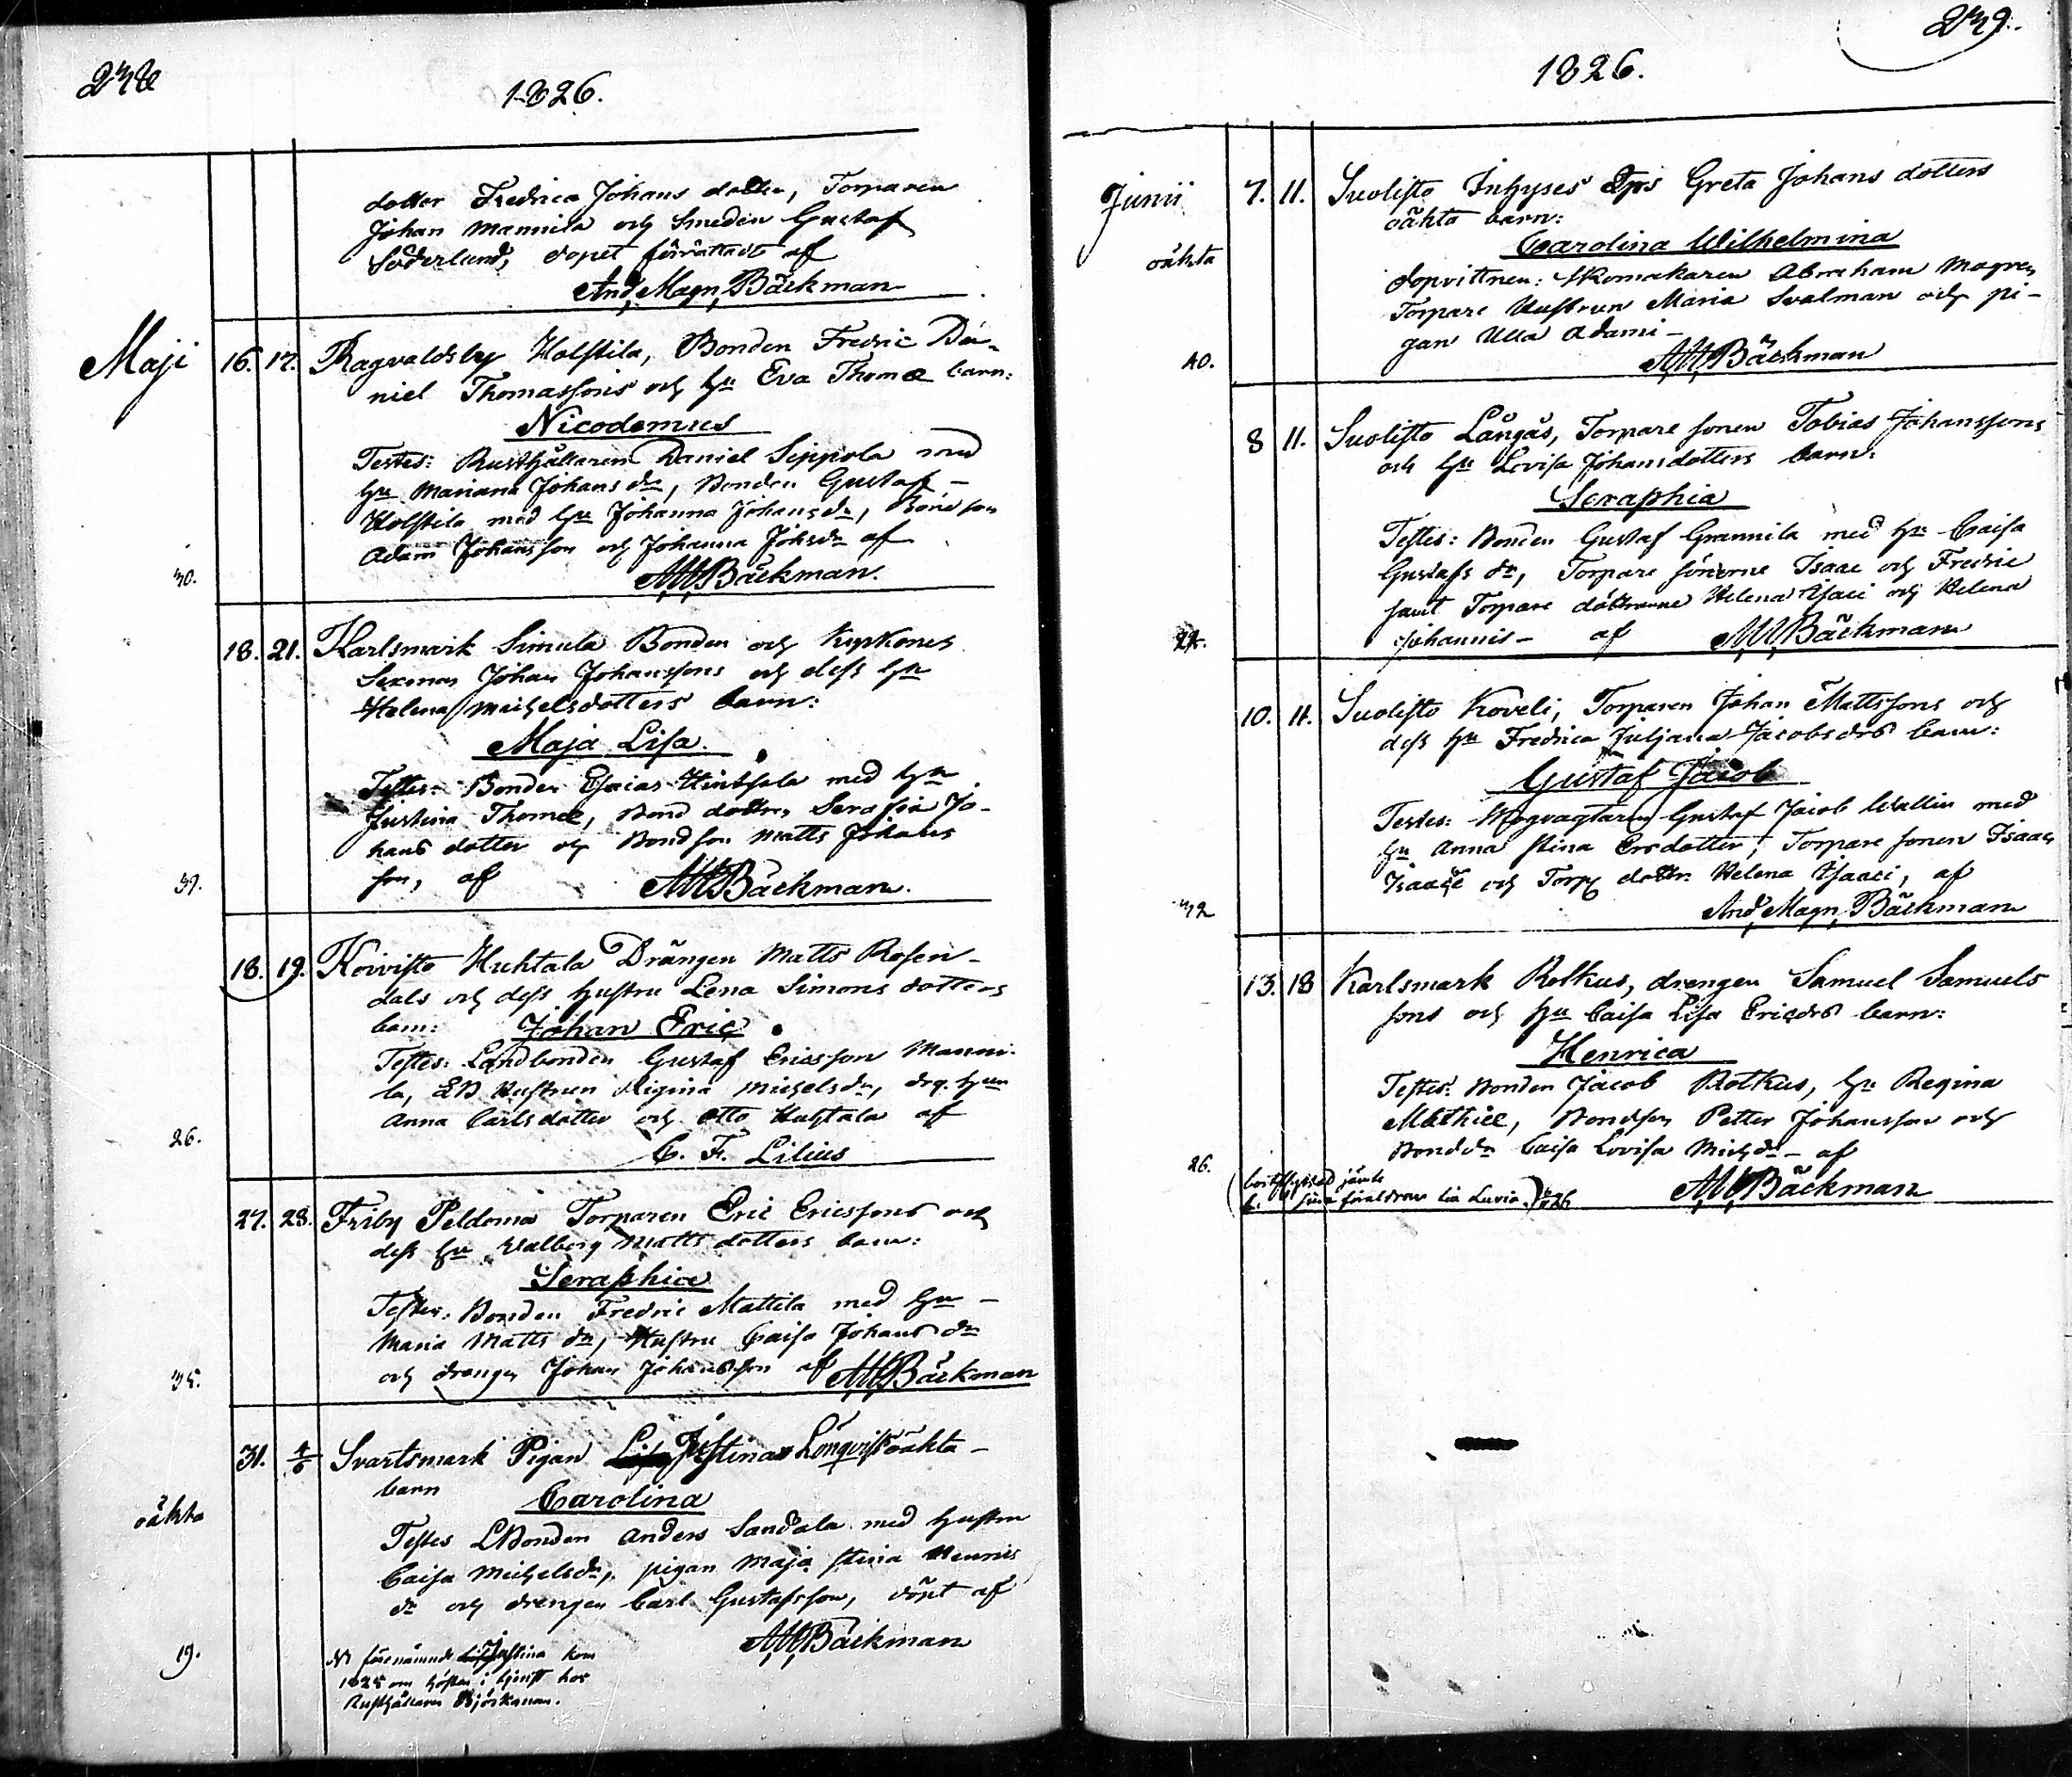 238
1826.
dotter Fredrica Johans dotter, Torparen
Johan Mannila och Smeden Gustaf
Söderlund, dopet förrättadt af
And. Magn. Bäckman
Maji 16. 17. Ragvaldsby Holstila, Bonden Fredric Da-
niel Thomassons och hu Eva Thomæ barn:
Nicodemus
Testes: Rusthållaren Daniel Sippola med
hu Mariana Johans dr, Bonden Gustaf
Holstila med hu Johanna Johansdr, Bondson
Adam Johansson och Johanna Johsdr af
30. AMBäckman.
18. 21. Karlsmark Simula Bonden och Kyrkones
Sexman Johan Johanssons och dess hu
Helena Michelsdotters barn:
Maja Lisa.
Testes: Bonden Esaias Hintsala med hu
Justina Thomæ, Bond dottren Serafia Jo-
hans dotter och Bondson Matts Johans
son, af AMBäckman.
39.
18. 19. Koivisto Huhtala Drängen Matts Rosen-
dals och dess hustru Lena Simons dotters
barn: Johan Eric
Testes: Landbonden Gustaf Ericsson Manni-
la, LB Hustrun Regina Michelsdr, drg. hun
Anna Carlsdotter och Otto Huhtala af
26. C. F. Lilius
27. 28. Friby Peldoma Torparen Eric Ericssons och
dess hu Walborg Mattsdotters barn:
Seraphia
Testes: Bonden Fredric Mattila med hu
Maria Matts dr, Hustru Caisa Johans dr
och drengen Johan Johansson af AMBäckman
35.
31. 4/6 Svartsmark Pigan Justinas Lönqvist oäkta
barn Carolina
oäkta
Testes LBonden Anders Sandala med hustru
Caisa Michelsdr, pigan Maja Stina Henrics
dr och drengen Carl Gustafsson, döpt af
AMBäckman
19. NB förenämnde Justina kom
1825 om hösten i tjenst hos
Rusthållaren Björkman.
239.
1826.
Junii 7. 11. Suolisto Inhyses Qps Greta Johans dotters
oäkta barn:
oäkta Carolina Wilhelmina
dopvittnen: Skomakaren Abraham Magren
Torpare Hustrun Maria Svalman och pi-
gan Ulla Adami
40. AMBäckman
8 11. Suolisto Långås, Torpare sonen Tobias Johanssons
och hu Lovisa Johansdotters barn:
Seraphia
Testes: Bonden Gustaf Grannila med hu Caisa
Gustafs dr, Torpare sönerne Isaac och Fredric
samt Torpare döttrarne Helena Isaci och Helena
Johannis - af AMBäckman
10. 11. Suolisto Koveli, Torparen Johan Mattssons och
dess hu Fredrica Juljana Jacobsdrs barn:
Gustaf Jacob
Testes: Skogvagtaren Gustaf Jacob Wallin med
hu Anna Stina Ersdotter, Torpare sonen Isaac
Isaaci och Torp dottr. Helena Isaaci, af
32 And. Magn. Bäckman
13. 18 Karlsmark Rotkus, drengen Samuel Samuels
sons och hu Caisa Lisa Ericsdrs barn:
Henrica
Testes: Bonden Jacob Rotkus, hu Regina
Mathiæ, Bondson Petter Johansson och
Bonddr Caisa Lovisa Michsdr - af
26. AMBäckman
(bortflyttad jämte
sina föräldrar till Luvia)